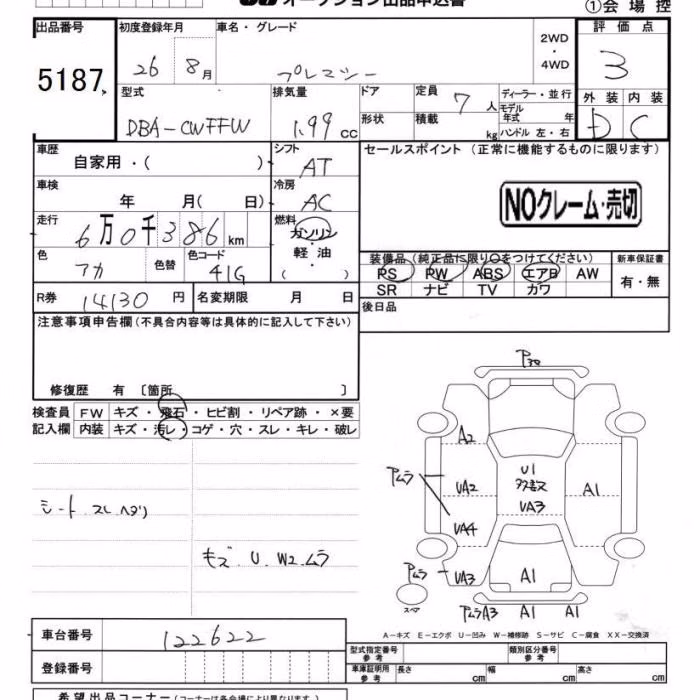 オークション出品申込書
①会場控
出品番号 初度登録年月 車名・グレード 2WD・4WD 評価点
5187 26 8月 プレマシー 3
型式 排気量 ドア 定員 7人 ディーラー・並行 外装 内装
DBA-CWFFW 1.99cc 形状 積載 kg モデル年式 年 ハンドル 左・右 D C
車歴 自家用・( ) シフト AT セールスポイント(正常に機能するものに限ります)
車検 年 月(日) 冷房 AC NOクレーム・売切
走行 6万0千386km 燃料 ガソリン・軽油・( )
色 アカ 色替 色コード 41G
装備品(純正品に限り○をつけてください) 新車保証書
PS PW ABS エアB AW 有・無
SR ナビ TV カワ
R券 14130円 名変期限 月 日 後日品
注意事項申告欄(不具合内容等は具体的に記入して下さい)
修復歴 有〔箇所 〕
検査員 FW キズ・飛石・ヒビ割・リペア跡・×要
記入欄 内装 キズ・汚レ・コゲ・穴・スレ・キレ・破レ
シート スレ ヘタリ
キズ・U・W2・ムラ
P30
A2
Pムラ
U1
UA2 UA3 A1
UA4
Pムラ UA3 A1
スペア
PムラA3 A1 A1
A-キズ E-エクボ U-凹み W-補修跡 S-サビ C-腐食 XX-交換済
車台番号 122622
型式指定番号 参考 類別区分番号 参考
登録番号
車庫証明用 参考 長さ cm 幅 cm 高さ cm
希望出品コーナー(コーナーは各会場により異なります。)